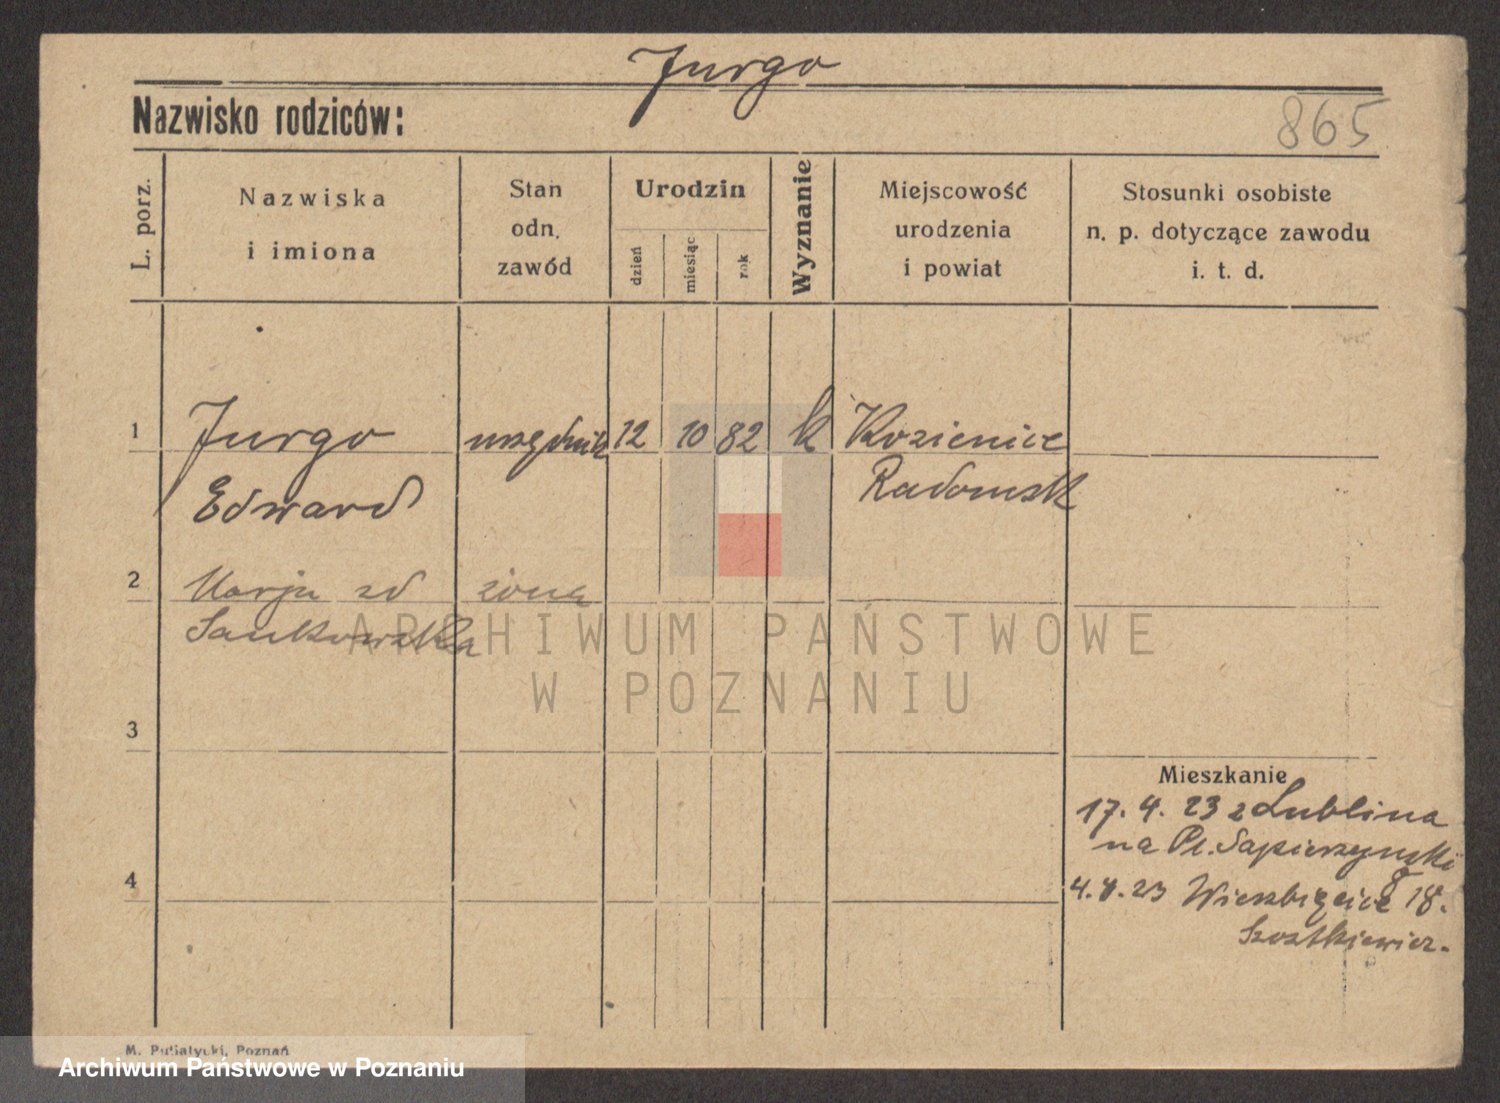 Jurgo
Nazwisko rodziców:
865
L. porz.
Nazwiska
i imiona
Stan
odn.
zawód
Urodzin
dzień
miesiąc
rok
Wyznanie
Miejscowość
urodzenia
i powiat
Stosunki osobiste
n. p. dotyczące zawodu
i. t. d.
1
Jurgo urzędnik 12 10 82 k Kozienice
Edward Radomsk
2
Marja zd żona
Sankowska
ARCHIWUM PAŃSTWOWE
W POZNANIU
3
Mieszkanie
17. 4. 23 z Lublina
na Pl. Sapierzyński
4
4. 8. 23 Wierzbięcice 18.
Szostkiewicz.
M. Putiatycki, Poznań
Archiwum Państwowe w Poznaniu